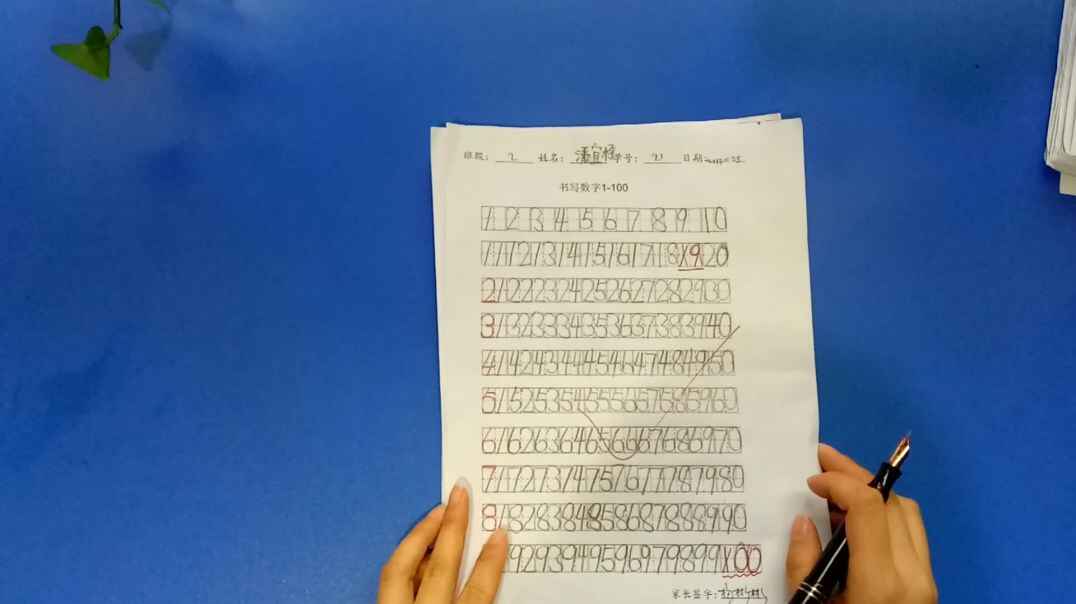 班级: 2 姓名: 潘宜 学号: 21 日期
书写数字1-100
1 2 3 4 5 6 7 8 9 10
11 12 13 14 15 16 17 18 19 20
21 22 23 24 25 26 27 28 29 30
31 32 33 34 35 36 37 38 39 40
41 42 43 44 45 46 47 48 49 50
51 52 53 54 55 56 57 58 59 60
61 62 63 64 65 66 67 68 69 70
71 72 73 74 75 76 77 78 79 80
81 82 83 84 85 86 87 88 89 90
92 93 94 95 96 97 98 99 100
家长签字: